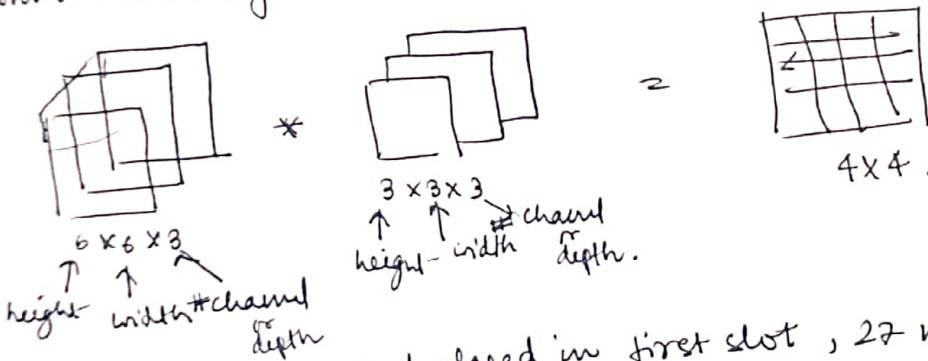 *
=
4 x 4.
6 x 6 x 3
height width # channel
or
depth
3 x 3 x 3
height width # channel
or
depth.
placed in first slot, 27